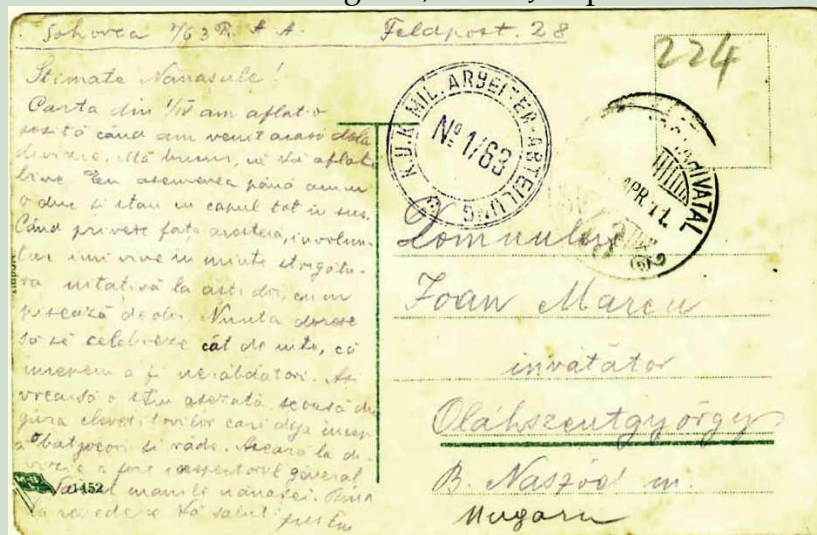 Feldpost. 28
224
Stimate Nănașule!
Carta din 1/IV am aflat-o
sosită când am venit acasă dela
divizie. Mă bucur, că vă aflați
bine. Eu asemenea până acum
o duc și stau cu capul tot în sus.
Când privesc fața acesteia, involun-
tar îmi vine în minte strigătu-
ra
la ăști doi, cum
de ochi. Nunta doresc
să se celebreze cât de
, că
a fi nerăbdători. Aș
vrea să o știu așezată, scoasă din
gura clevetitorilor cari deja încep
a batjocori și râde. Aseară la di-
vizie a fost inspectorul general
Sărut manile nănașei. Până
la revedere Vă salut
1452
K.U.K. MIL. ARBEITER-ABTEILUNG
No 1/63
HIVATAL
APR. 11.
Domnului
Ioan Marcu
învățător
Oláhszentgyörgy
B. Naszód m.
Ungaru